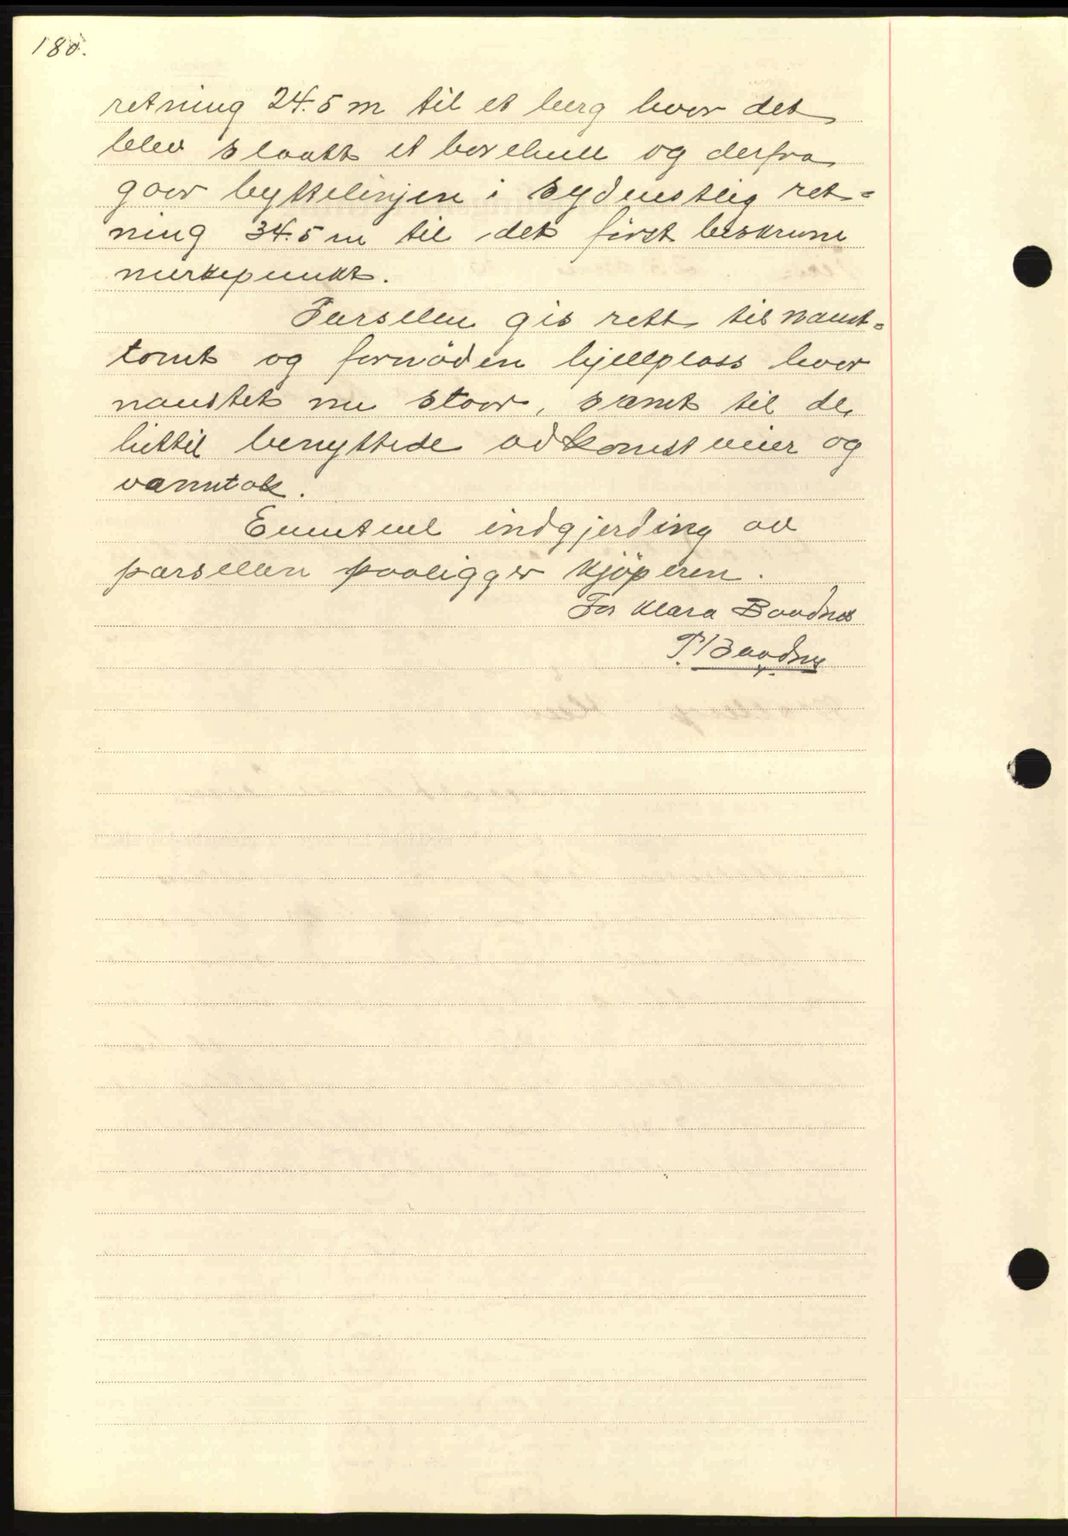 180.
retning 24.5 m til et berg hvor det
blev slaatt et borehull og derfra
gaar byttelinjen i sydøstlig ret-
ning 34.5 m til det først beskrevne
merkepunkt.
Parsellen gis rett til naust-
tomt og fornøden hjellplass hvor
naustet nu staar, samt til de
hittil benyttede adkomstveier og
vanntak.
Eventuel indgjerding av
parsellen paaligger kjöperen.
For Klara Baadnes
P. Baadnes